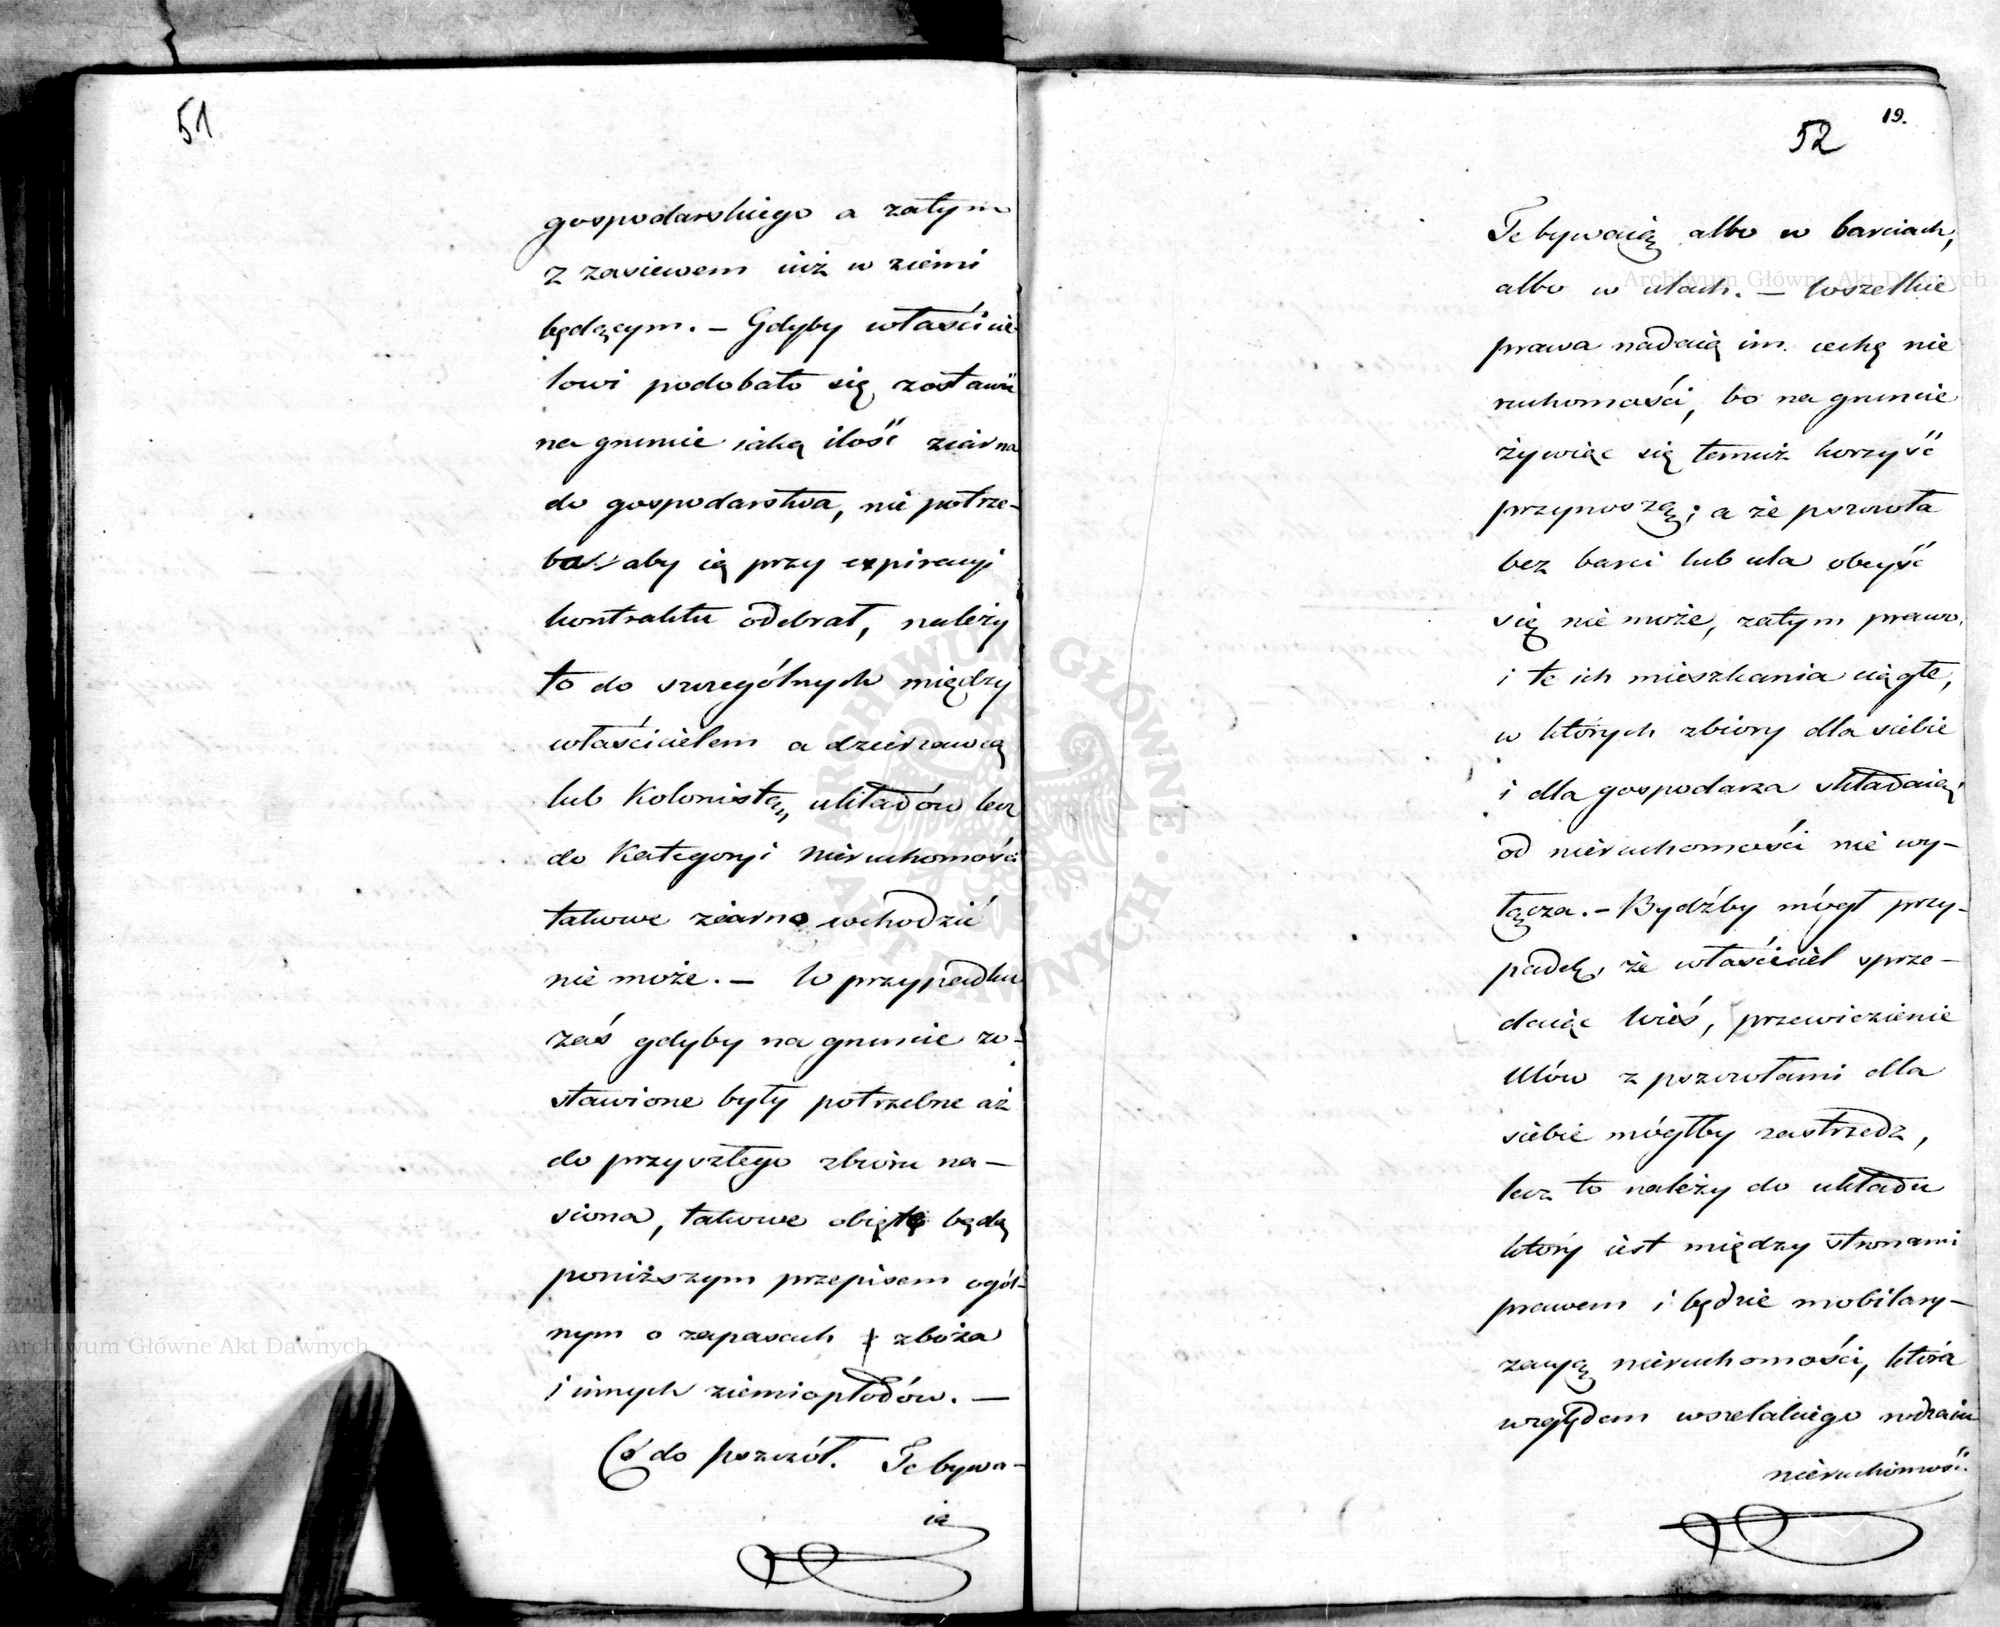 51
gospodarskiego a zatym
z zasiewem iuż w ziemi
będącym. – Gdyby właścicie-
lowi podobało się zostawić
na gruncie iaką ilość ziarna
do gospodarstwa, nie potrze-
ba aby ią przy expiracyi
kontraktu odebrał, należy
to do szczególnych między
właścicielem a dzierzawcą
lub Kolonistą, układów lecz
do Kategoryi Nieruchomości
takowe ziarno wchodzić
nie może. – W przypadku
zaś gdyby na gruncie zo-
stawione były potrzebne aż
do przyszłego zbioru na-
siona, takowe obięte będą
poniższym przepisem ogól-
nym o zapasach zboża
i innych ziemiopłodów. –
Co do pszczół. Te bywa-
ią
52
19.
Te bywaią albo w barciach,
albo w ulach. – Wszelkie
prawa nadaią im cechę nie
ruchomości, bo na gruncie
żywiąc się temuż korzyść
przynoszą; a że pszczoła
bez barci lub ula obeyść
się nie może, zatym prawo
i te ich mieszkania ciągłe,
w których zbiory dla siebie
i dla gospodarza składaią,
od nieruchomości nie wy-
łącza. – Bydźby mógł przy-
padek, że właściciel sprze-
daiąc wieś, przewiezienie
Ulów z pszczołami dla
siebie mógłby zastrzedz,
lecz to należy do układu
który iest między stronami
prawem i będzie mobilary-
zacyą nieruchomości, która
względem wszelakiego rodzaiu
nieruchomości
Archiwum Główne Akt Dawnych
Archiwum Główne Akt Dawnych
ARCHIWUM GŁÓWNE AKT DAWNYCH